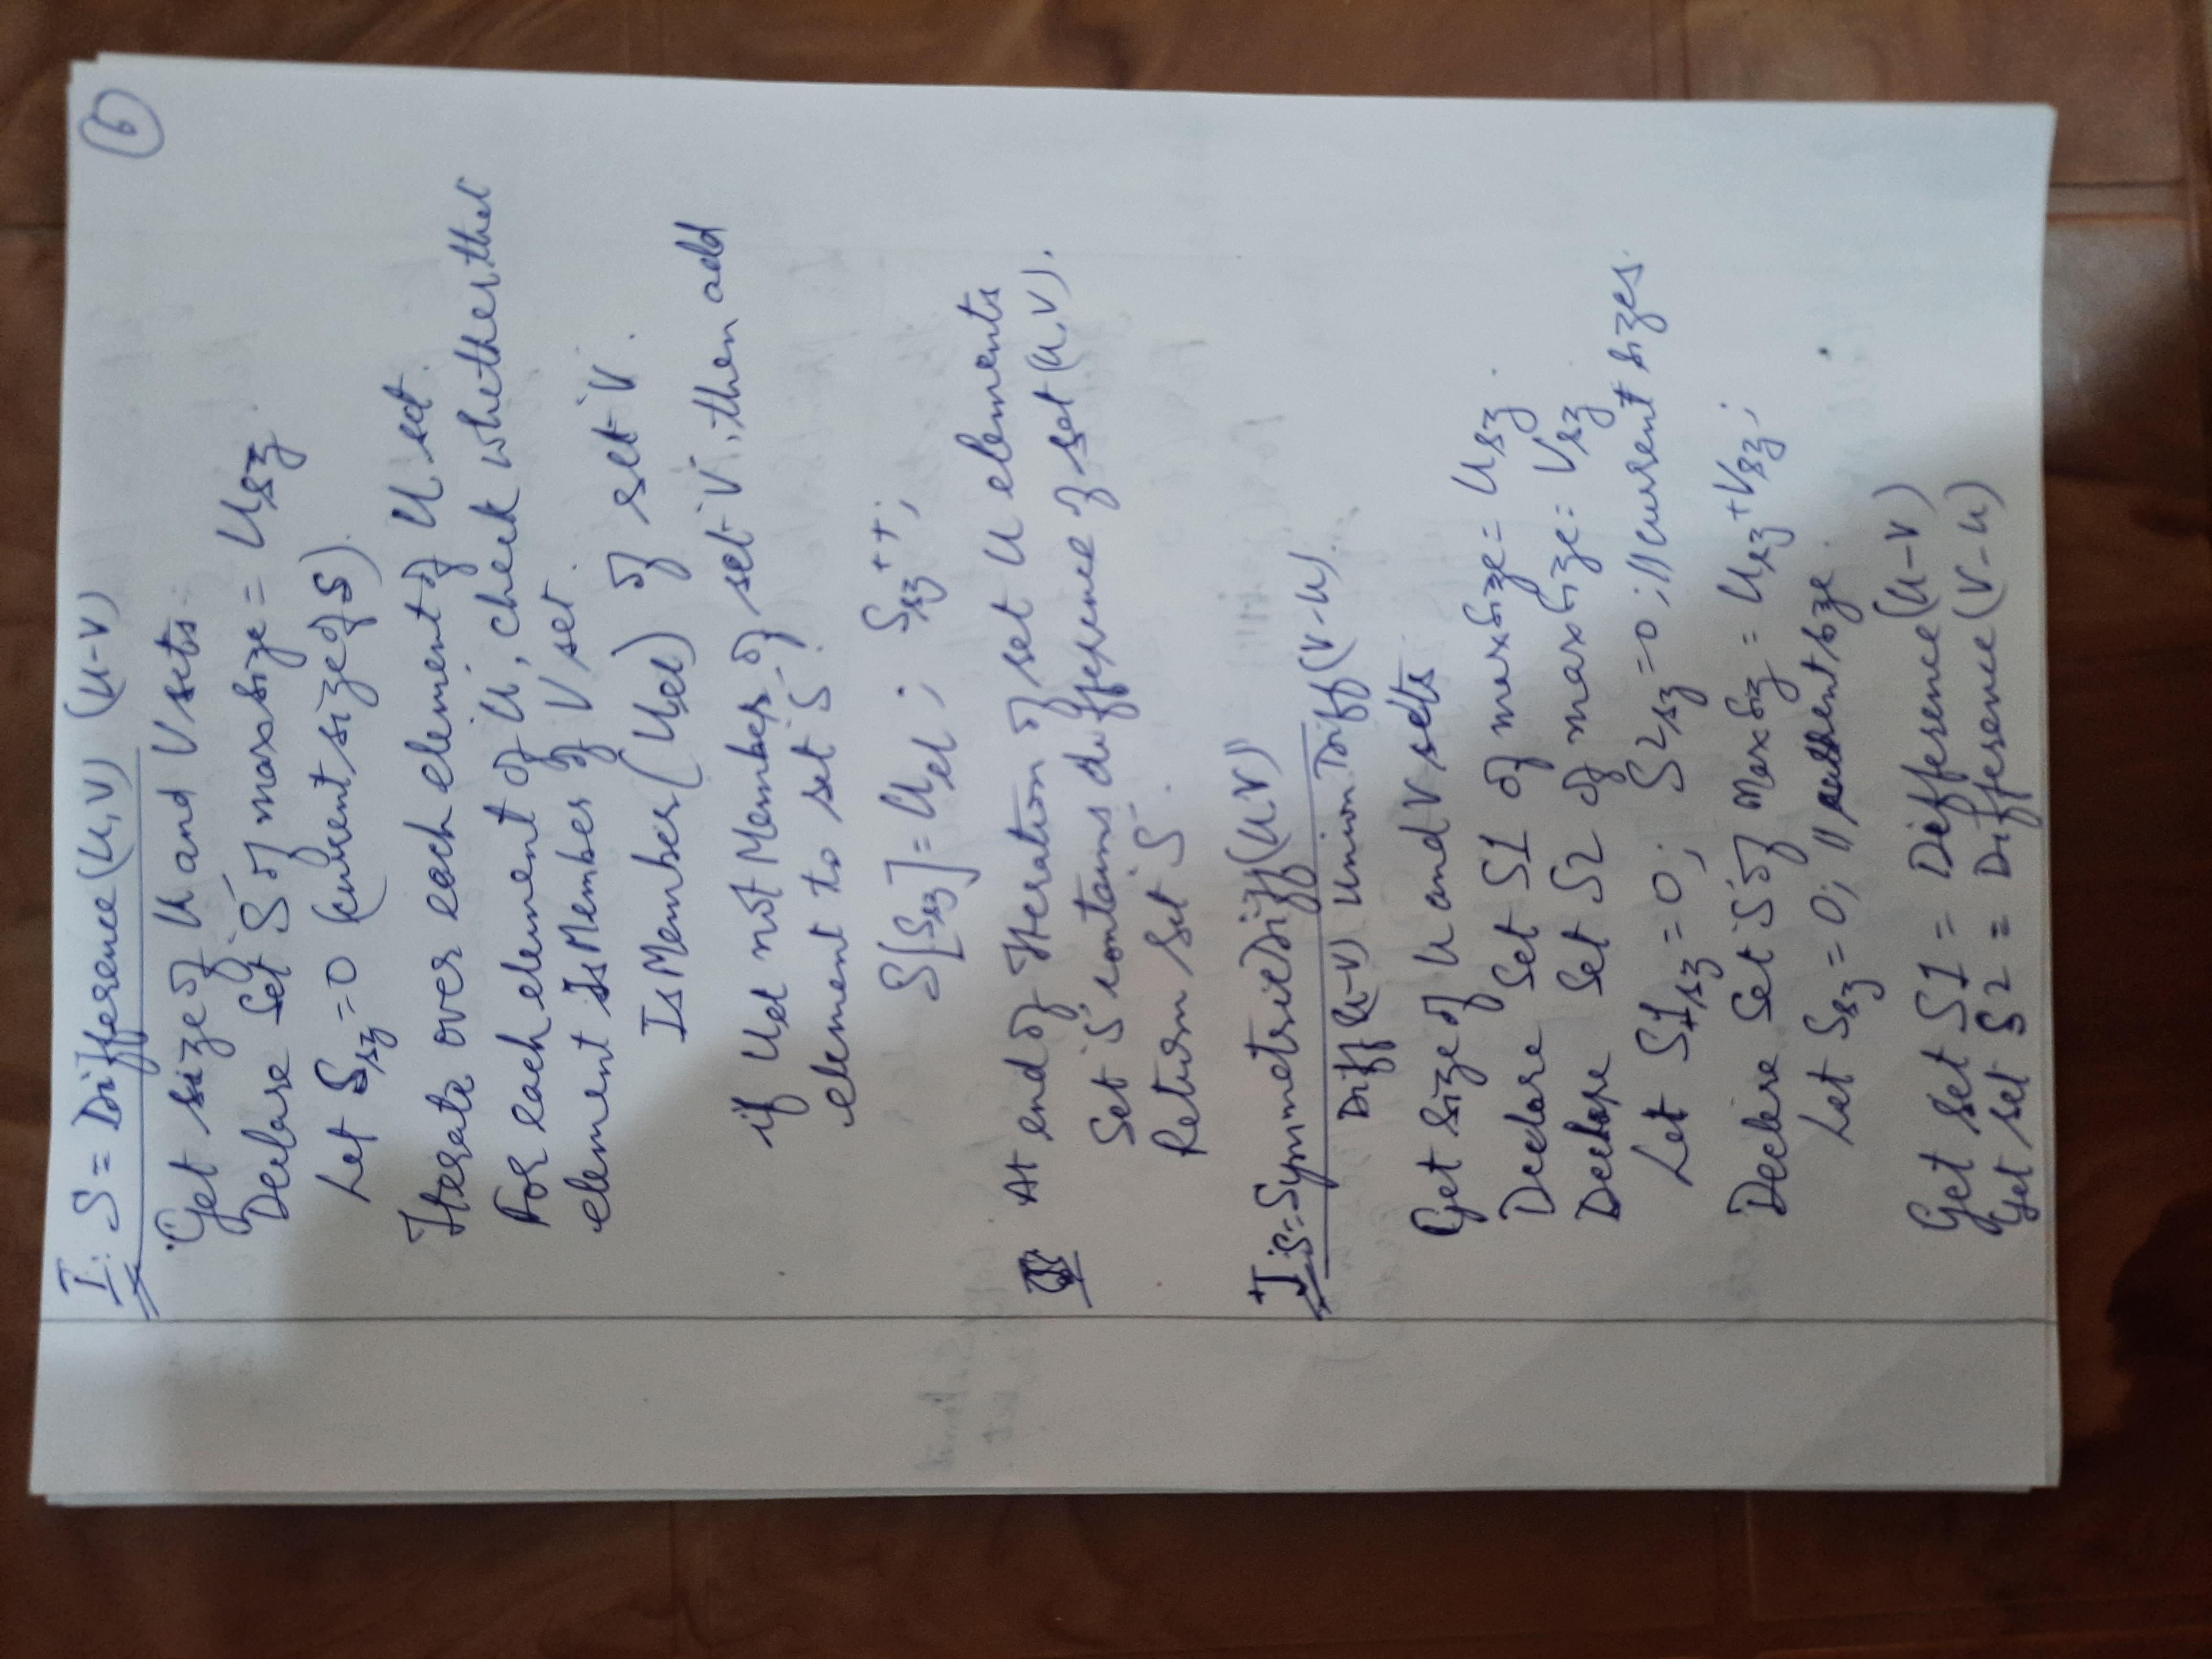 6
I: S = Difference(U,V) (U-V)
Get size of U and V sets
Declare Set "S" of maxsize = Usz.
Let Ssz = 0 (current size of S).
Iterate over each element of U set.
For each element of "U", check whether that
element IsMember of V set.
IsMember(Uel) of set "V".
if Uel not Member of set "V", then add
element to set "S".
S[Ssz] = Uel ; Ssz++;
At end of Iteration of set U elements
Set "S" contains difference of set (U,V).
Return Set "S".
J: S = SymmetricDiff(U,V)
Diff(U-V) Union Diff(V-U).
Get size of U and V sets
Declare Set S1 of maxsize = Usz.
Declare Set S2 of maxsize = Vsz
Let S1sz = 0; S2sz = 0; // current sizes.
Declare Set "S" of MaxSiz = Usz + Vsz;
Let Ssz = 0; // current size.
Get set S1 = Difference(U-V)
Get set S2 = Difference(V-U)